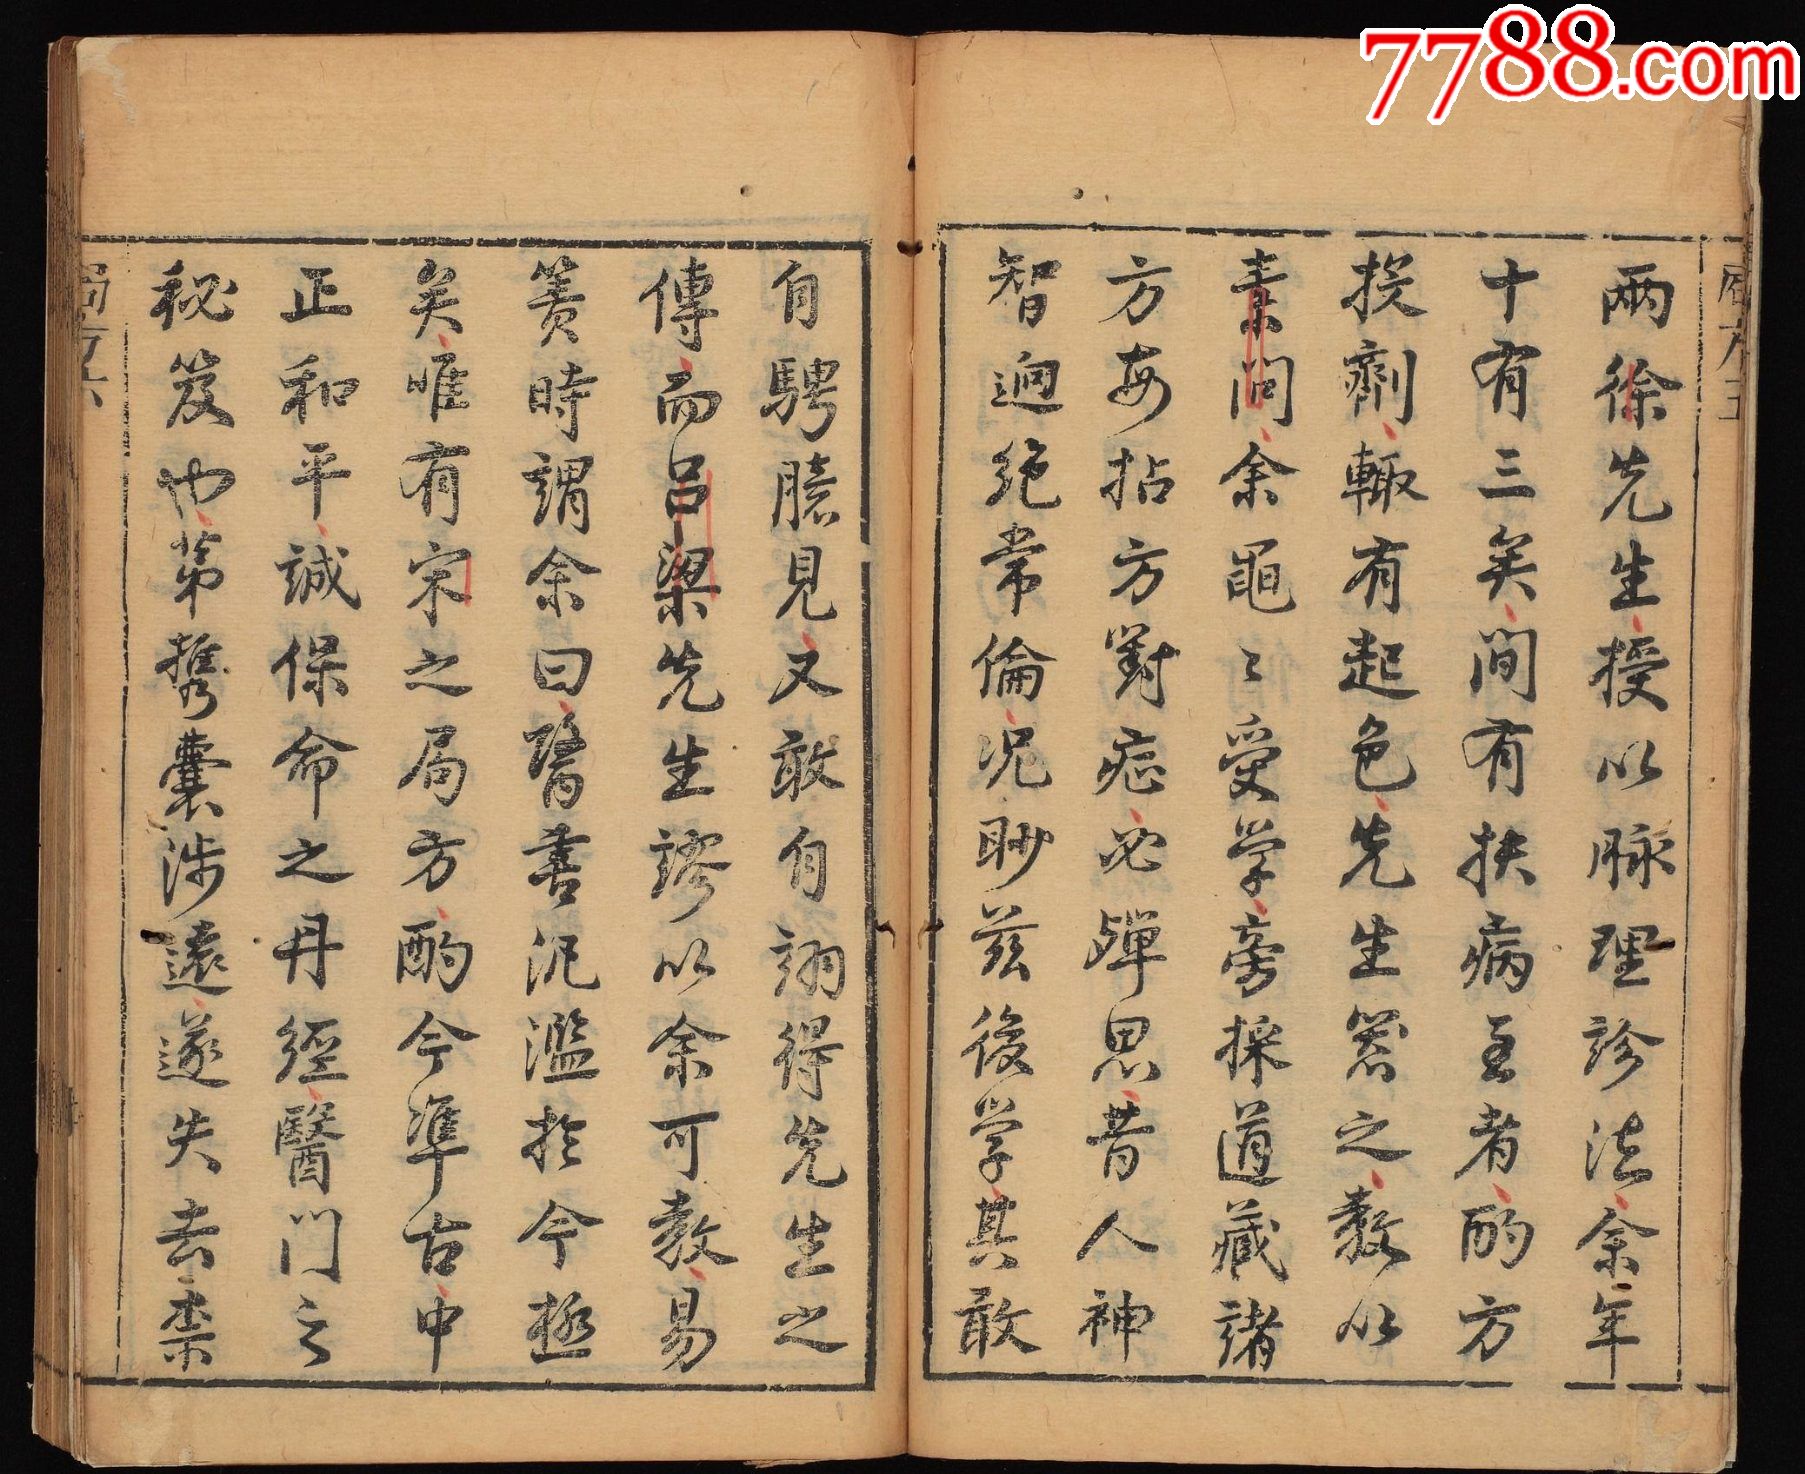 7788.com
兩徐先生授以脉理診法余年
十有三矣間有扶病至者酌方
投劑輒有起色先生器之教以
素問余黽〻受学旁採道藏諸
方每拈方對症必殫思昔人神
智迥绝常倫况眇兹後学其敢
自騁臆見又敢自詡得先生之
傳而吕梁先生謬以余可教易
簀時謂余曰醫書汎濫於今極
矣唯有宋之局方酌今準古中
正和平誠保命之丹經醫门之
秘笈也苐携囊涉遠遂失去柰